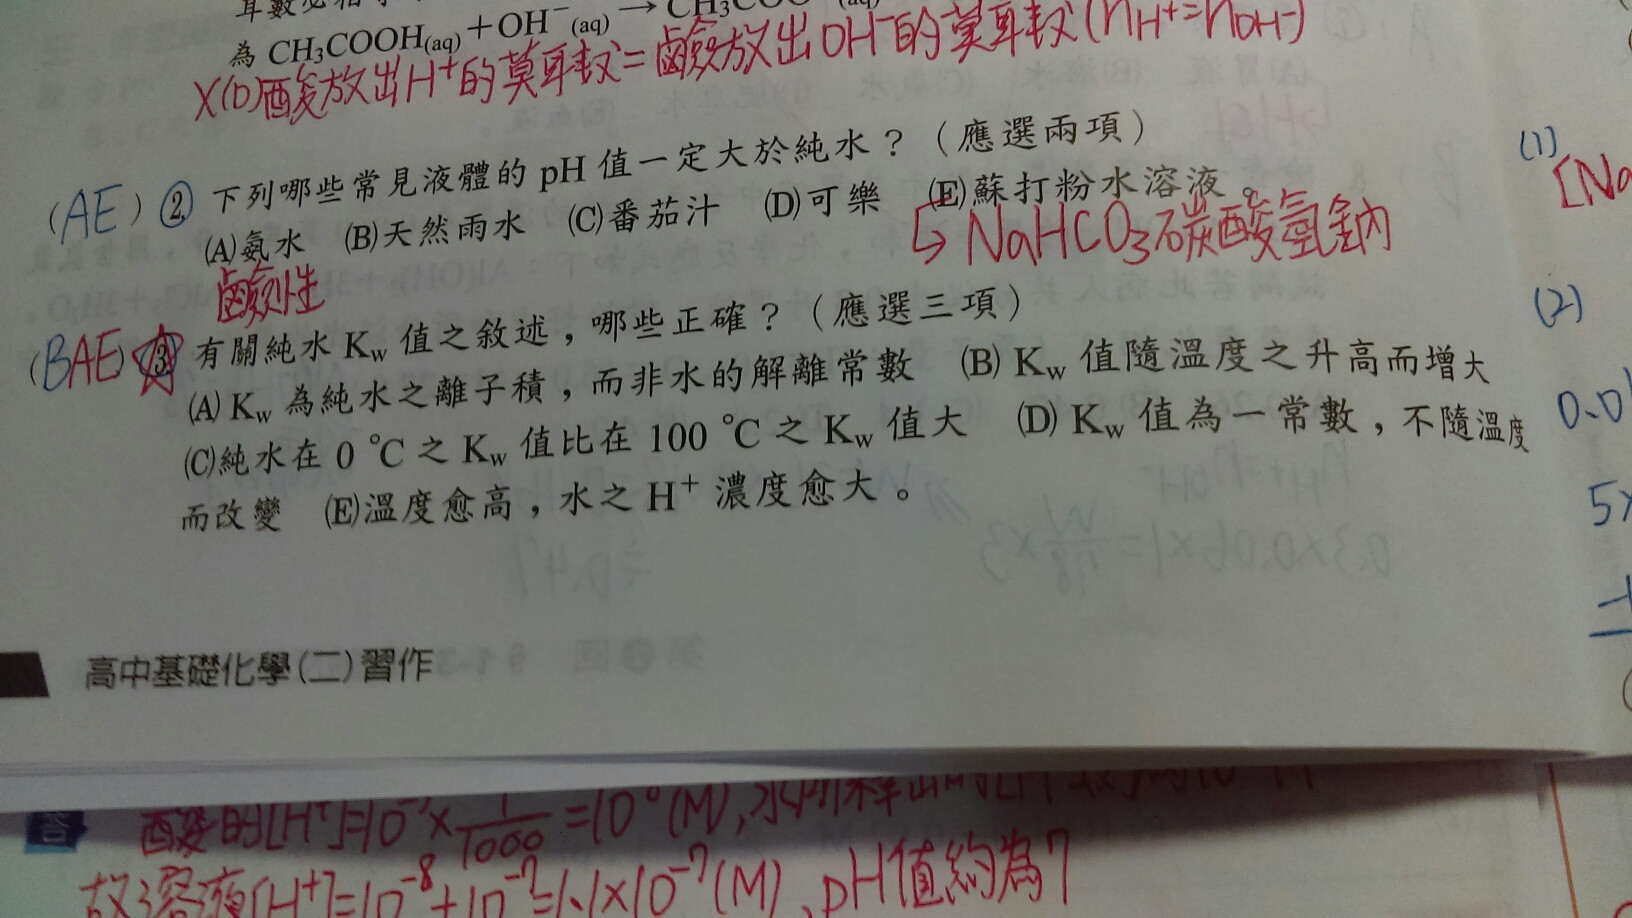 為 CH₃COOH(aq)+OH⁻(aq) → CH₃COO
X(D)酸放出H⁺的莫耳數=鹼放出OH⁻的莫耳數(nH⁺=nOH⁻)
(AE) ② 下列哪些常見液體的 pH 值一定大於純水?(應選兩項)
(A)氨水 (B)天然雨水 (C)番茄汁 (D)可樂 (E)蘇打粉水溶液。
鹼性
↳ NaHCO₃碳酸氫鈉
(BAE) 3 有關純水 Kw 值之敘述,哪些正確?(應選三項)
(A) Kw 為純水之離子積,而非水的解離常數 (B) Kw 值隨溫度之升高而增大
(C)純水在 0 ℃ 之 Kw 值比在 100 ℃ 之 Kw 值大 (D) Kw 值為一常數,不隨溫度
而改變 (E)溫度愈高,水之 H⁺ 濃度愈大。
高中基礎化學(二)習作
(1)
[Na
(2)
0.01
答
故溶液[H⁺]=10⁻⁸+10⁻⁷=1.1×10⁻⁷(M),pH值約為7